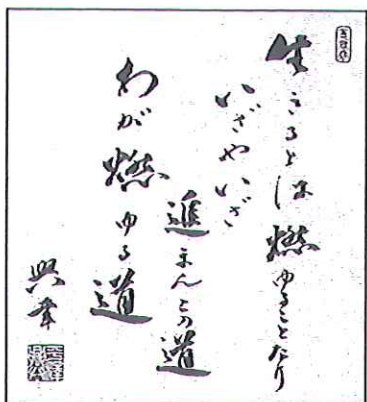 生きるとは燃ゆることなり
いざやいざ
進まんこの道
わが燃ゆる道
興幸